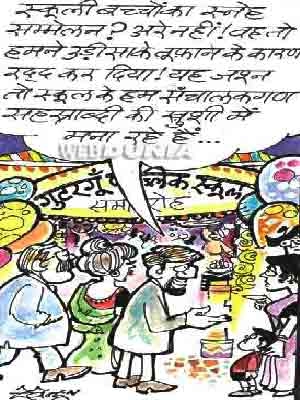 स्कूली बच्चों का स्नेह
सम्मेलन? अरे नहीं! वह तो
हमने उड़ीसा के तूफान के कारण
रद्द कर दिया! यह जश्न
तो स्कूल के हम संचालकगण
सहस्त्राब्दी की खुशी में
मना रहे हैं...
WEBDUNIA
गुटरगूँ पब्लिक स्कूल
समारोह